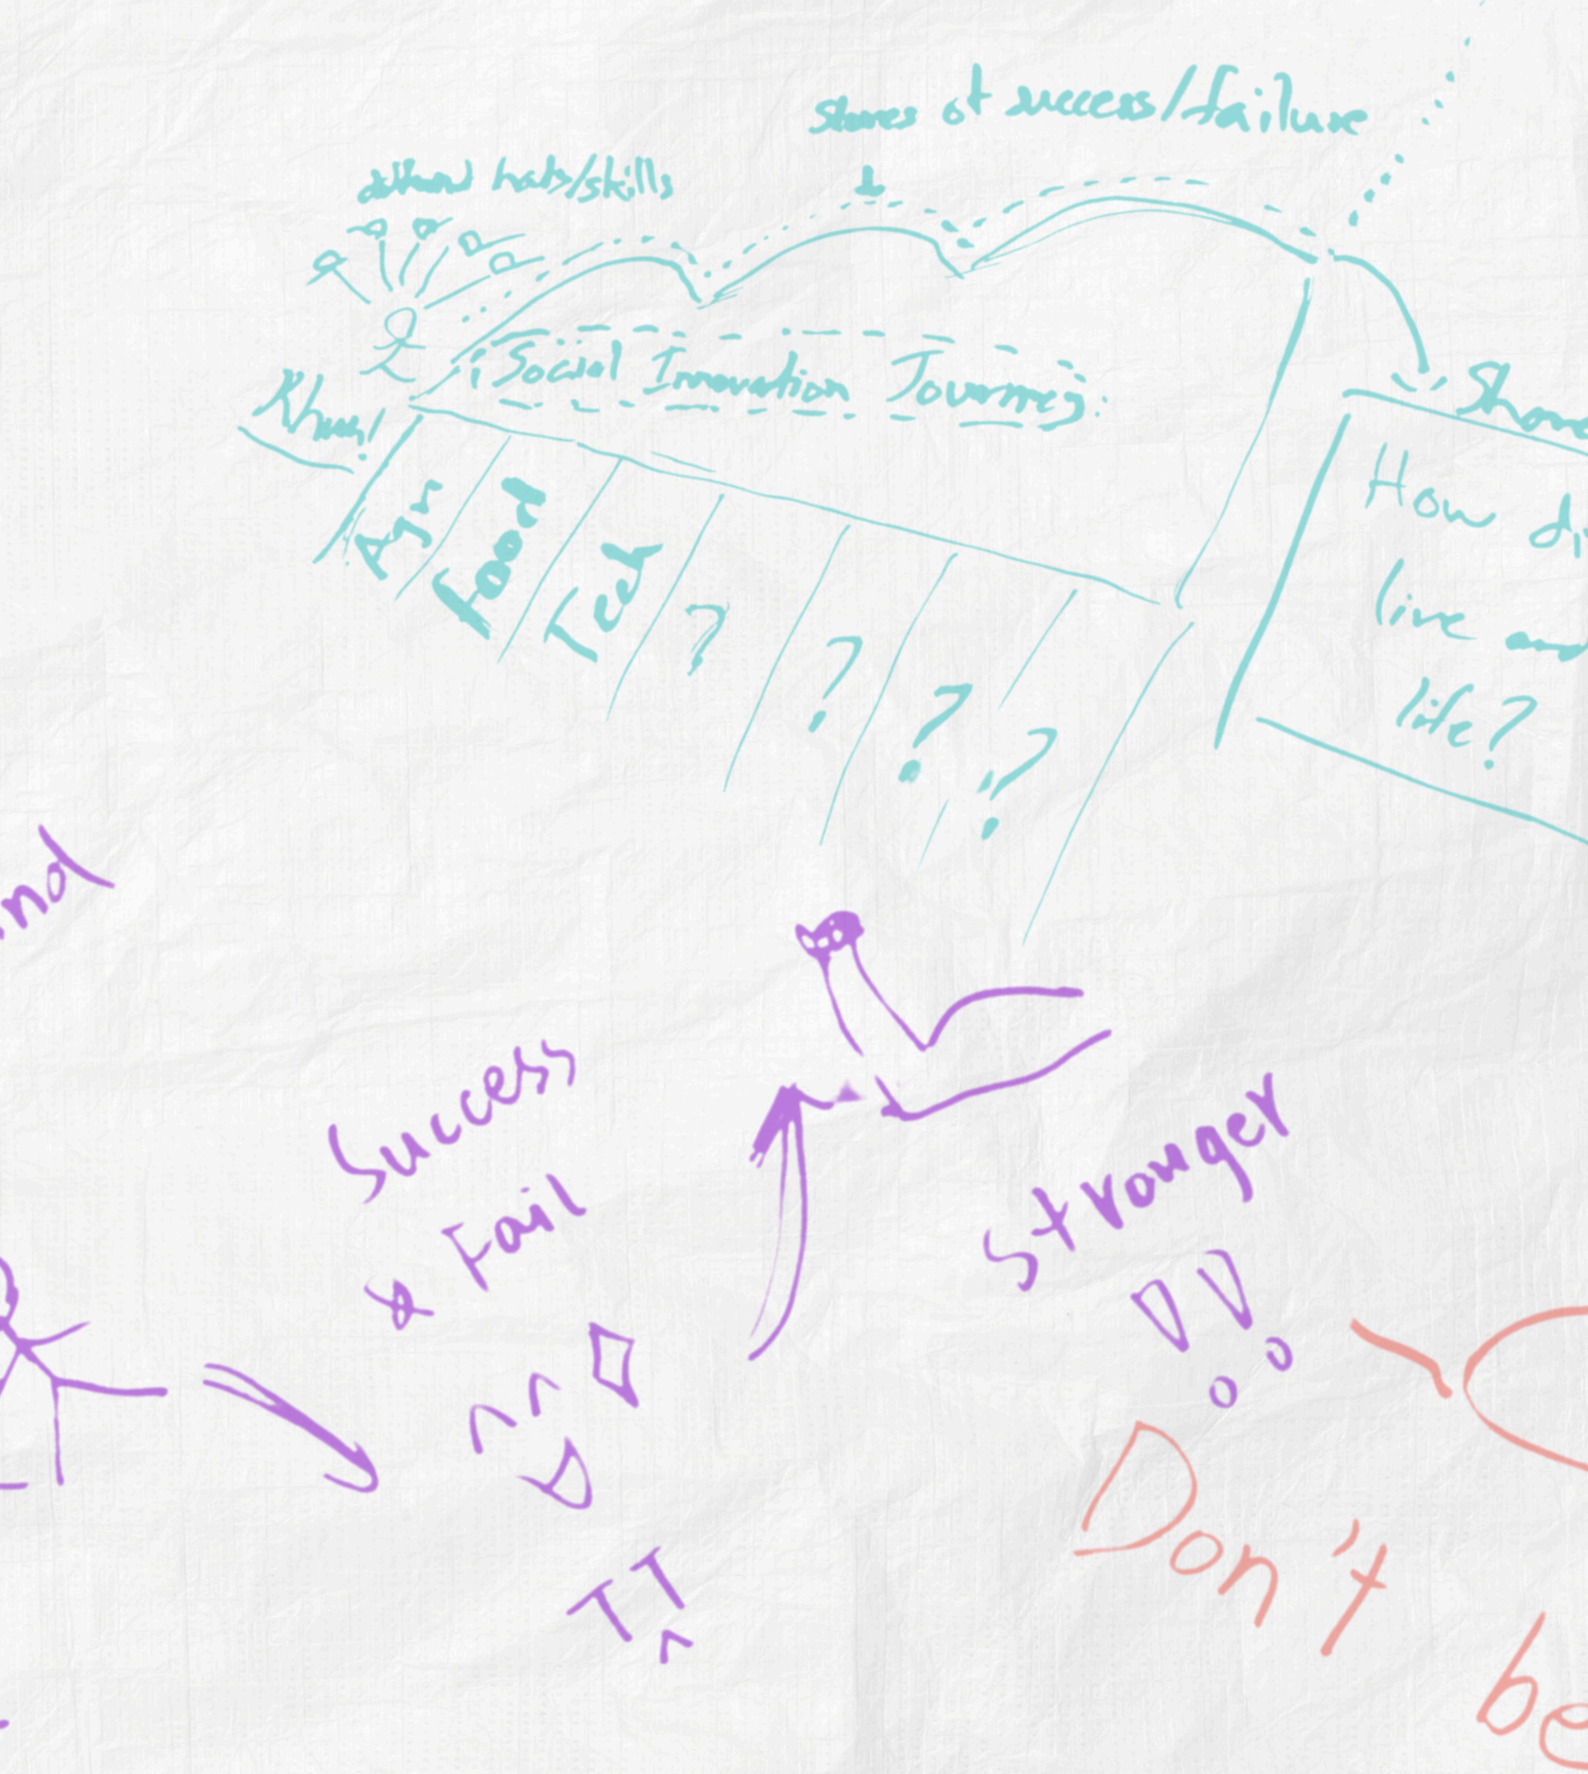 of success/failure
hats/skills
Social Innovation Journey
Agr
Food
Tech
?
?
?
?
How di
live and
life?
nd
Success
& Fail
^ ^
T T
^
Stronger
!!
Don't
be